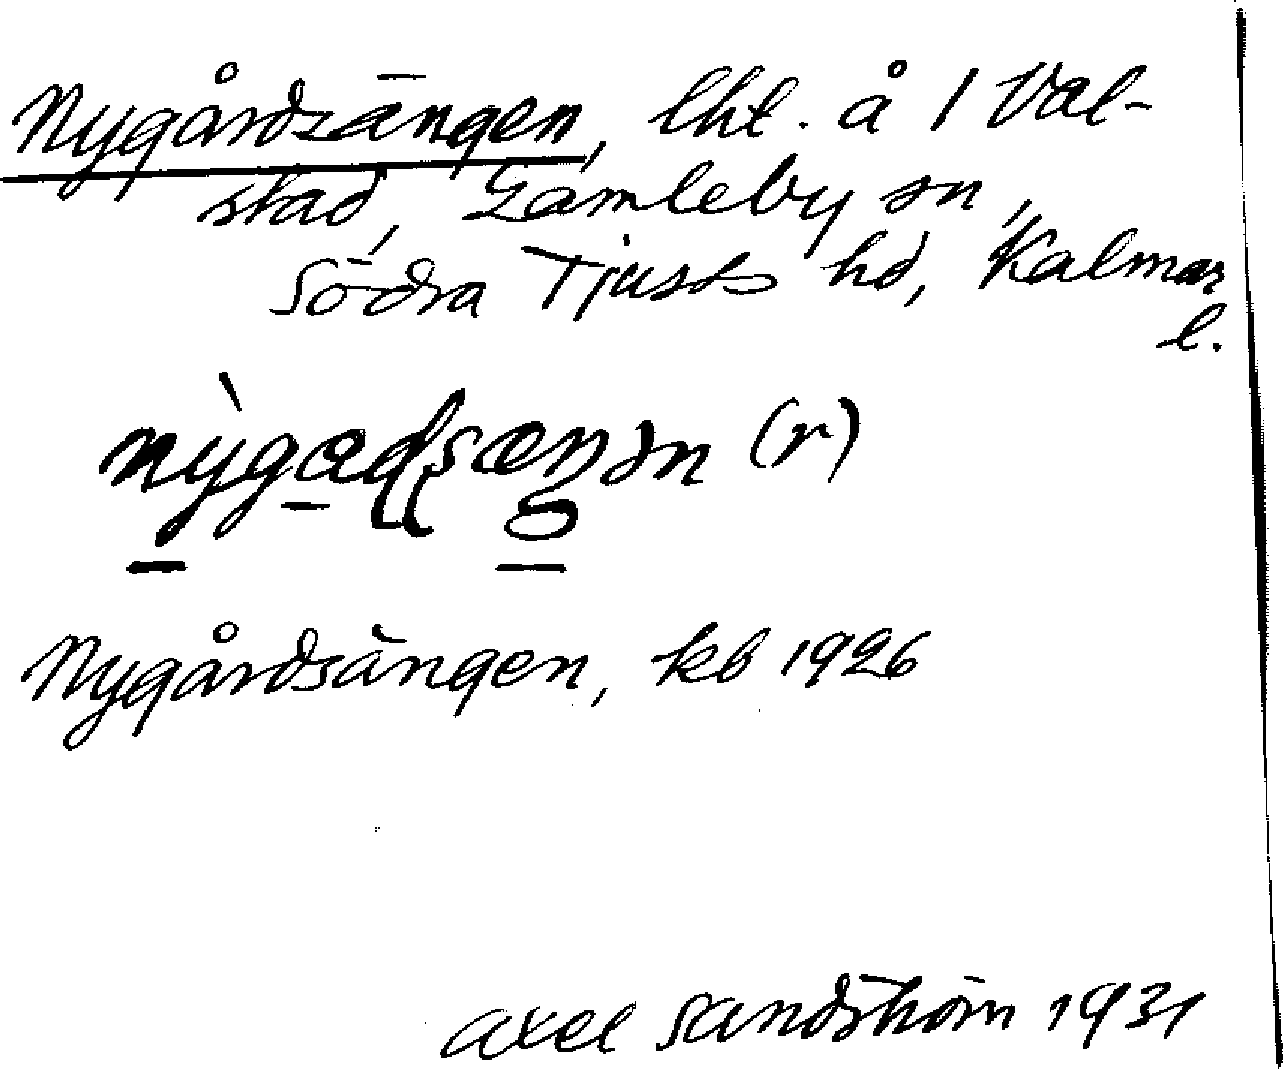 Nygårdsängen, lht. å 1 Val-
stad, Gamleby sn,
Södra Tjusts hd, Kalmar
l.
(r)
Nygårdsängen, kb 1926
Axel Sandström 1931